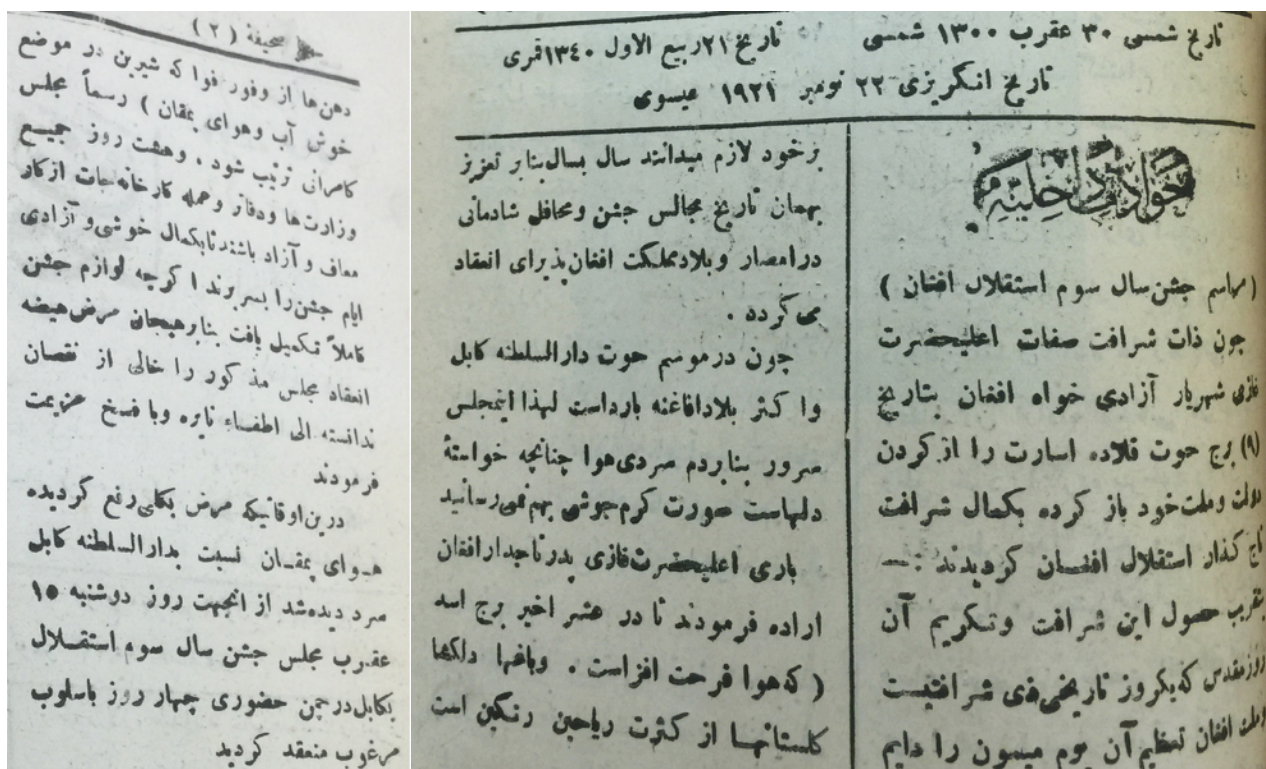 تاریخ شمسی ۳۰ عقرب ۱۳۰۰ شمسی تاریخ ۲۱ ربیع الاول ۱۳٤۰ قمری
تاریخ انکریزی ۲۲ نومبر ۱۹۲۱ عیسوی
حوادث داخلیه
(مراسم جشن سال سوم استقلال افغان )
چون ذات شرافت صفات اعلیحضرت
غازی شهریار آزادی خواه افغان بتاریخ
(۹) برج حوت قلاده اسارت را از کردن
دولت وملت خود باز کرده بکمال شرافت
تاج کذار استقلال افغان کردیدند :—
بتقریب حصول این شرافت وتکریم آن
روز مقدس که یکروز تاریخی ذی شرافتیست
وملت افغان تعظیم آن یوم میمون را دایم
برخود لازم میدانند سال بسال بنابر تعزز
بهمان تاریخ مجالس جشن ومحافل شادمانی
درامصار وبلاد مملکت افغان پذیرای انعقاد
می کردد .
چون درموسم حوت دارالسلطنه کابل
وا کثر بلاد افاغنه بارداست لهذا اینمجلس
سرور بنابردم سردی هوا چنانچه خواستهٔ
دلهاست صورت کرم جوشی بهم نمی رسانید
باری اعلیحضرت غازی پدر تاجدار افغان
اراده فرمودند تا در عشر اخیر برج اسد
( که هوا فرحت افزاست . وباغها دلکشا
کلستانها از کثرت ریاحین رنکین است
صحیفة ( ۲ )
دهن ها از وفور فوا که شیرین در موضع
خوش آب وهوای پمقان ) رسماً مجلس
کامرانی ترتیب شود . وهشت روز جمیع
وزارت ها ودفاتر وجمله کارخانه جات از کار
معاف و آزاد باشند تا بکمال خوشی و آزادی
ایام جشن را بسر برند ا کرچه لوازم جشن
کاملاً تکمیل یافت بنابر هیجان مرض هیضه
انعقاد مجلس مذ کور را خالی از نقصان
ندانسته الی اطفاء نایره وبا فسخ عزیمت
فرمودند
درین اوقاتیکه مرض بکلی رفع کردیده
هوای پمقان نسبت بدارالسلطنه کابل
سرد دیده شد از انجهت روز دوشنبه ۱۵
عقرب مجلس جشن سال سوم استقلال
بکابل در چمن حضوری چهار روز باسلوب
مرغوب منعقد کردید